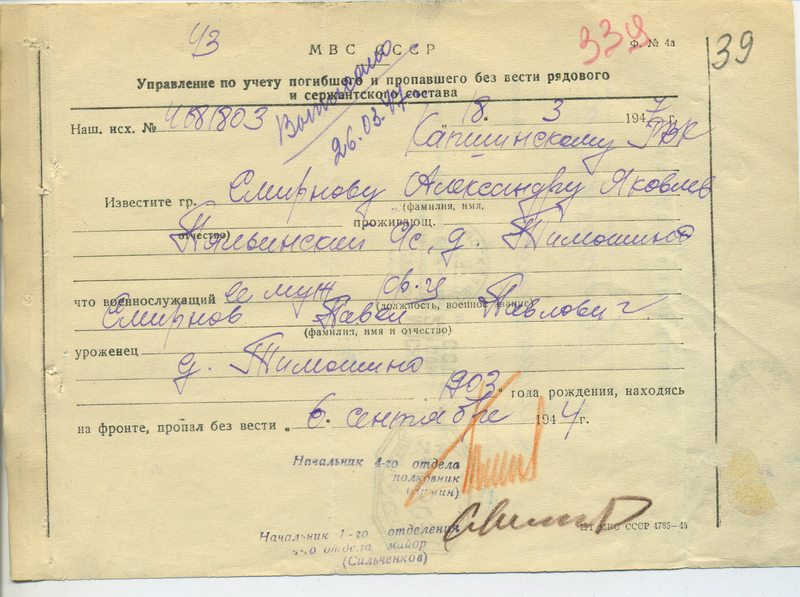 УЗ
339
39
МВС СССР
Ф. № 4а
Управление по учету погибшего и пропавшего без вести рядового
и сержантского состава
Выписано
26.03.47.
Наш. исх. № 468/803 „18. 3 1947 г.
Капшинскому РВК
Известите гр. Смирнову Александру Яковлев
(фамилия, имя,
проживающ.
отчество)
с, д. Тимошино
что военнослужащий ее муж
(должность, военное звание)
Смирнов Павел Павлович
(фамилия, имя и отчество)
уроженец
д. Тимошино
903 года рождения, находясь
на фронте, пропал без вести „6. сентября 1944 г.
Начальник 4-го отдела
полковник
Начальник 1-го отделения
4-го отдела майор
(Сильченков)
МВС СССР 4785—48